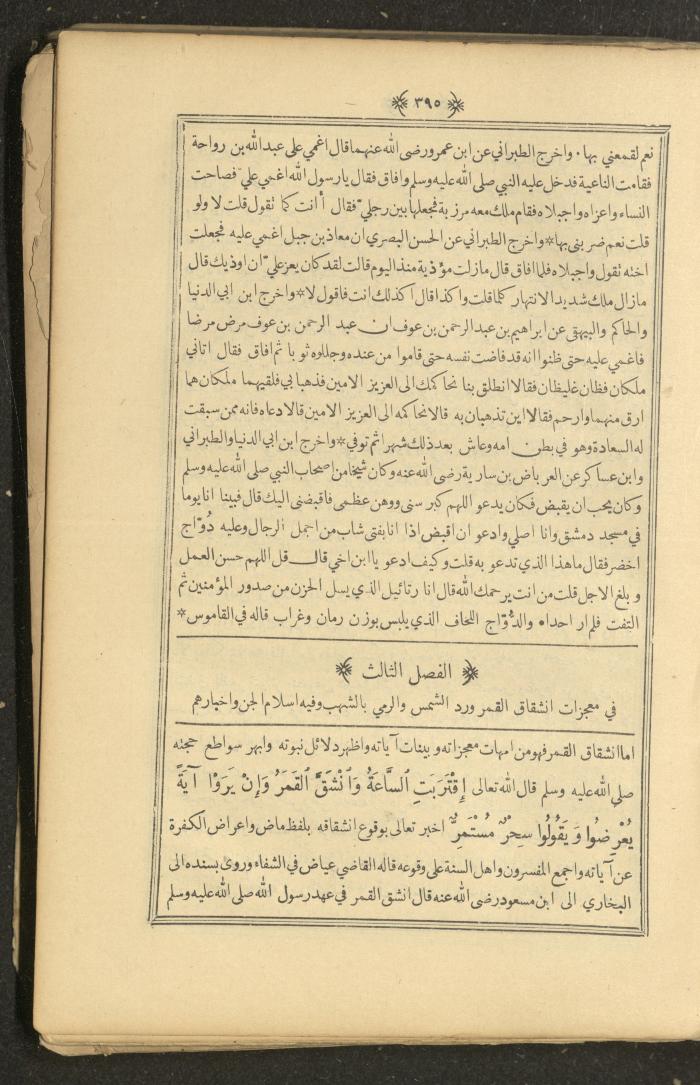 ﴿ ٣٩٥ ﴾
نعم لقمعني بها . واخرج الطبراني عن ابن عمر و رضى الله عنهما قال اغمي على عبد الله بن رواحة
فقامت الناعية فدخل عليه النبي صلى الله عليه وسلم وافاق فقال يا رسول الله اغمي علي فصاحت
النساء واعزاه واجبلاه فقام ملك معه مرزبة فجعلها بين رجلي فقال أ أنت كما تقول قلت لا ولو
قلت نعم ضربني بها * واخرج الطبراني عن الحسن البصري ان معاذ بن جبل اغمي عليه فجعلت
اخته تقول واجبلاه فلما افاق قال ما زلت مؤذية منذ اليوم قالت لقد كان يعز علي ان اوذيك قال
ما زال ملك شديد الانتهار كلما قلت واكذا قال اكذلك انت فاقول لا * واخرج ابن ابي الدنيا
والحاكم والبيهقى عن ابراهيم بن عبد الرحمن بن عوف ان عبد الرحمن بن عوف مرض مرضا
فاغمي عليه حتى ظنوا انه قد فاضت نفسه حتى قاموا من عنده وجللوه ثوبا ثم افاق فقال اتاني
ملكان فظان غليظان فقالا انطلق بنا نحاكمك الى العزيز الامين فذهبا بي فلقيهما ملكان هما
ارق منهما وارحم فقالا اين تذهبان به قالا نحاكمه الى العزيز الامين قالا دعاه فانه ممن سبقت
له السعادة وهو في بطن امه وعاش بعد ذلك شهرا ثم توفي * واخرج ابن ابي الدنيا والطبراني
وابن عساكر عن العرباض بن سارية رضى الله عنه وكان شيخا من اصحاب النبي صلى الله عليه وسلم
وكان يحب ان يقبض فكان يدعو اللهم كبر سنى ووهن عظمى فاقبضنى اليك قال فبينا انا يوما
في مسجد دمشق وانا اصلي وادعو ان اقبض اذا انا بفتى شاب من اجمل الرجال وعليه دُوَّاج
اخضر فقال ما هذا الذي تدعو به قلت وكيف ادعو يا ابن اخي قال قل اللهم حسن العمل
وبلغ الاجل قلت من انت يرحمك الله قال انا رتائيل الذي يسل الحزن من صدور المؤمنين ثم
التفت فلم ار احدا . والدُّوَّاج اللحاف الذي يلبس بوزن رمان وغراب قاله في القاموس *
﴿ الفصل الثالث ﴾
في معجزات انشقاق القمر ورد الشمس والرمي بالشهب وفيه اسلام الجن واخبارهم
اما انشقاق القمر فهو من امهات معجزاته وبينات آياته واظهر دلائل نبوته وابهر سواطع حجته
صلى الله عليه وسلم قال الله تعالى اِقْتَرَبَتِ ٱلسَّاعَةُ وَٱنْشَقَّ ٱلقَمَرُ وَإِنْ يَرَوْا آيَةً
يُعْرِضُوا وَيَقُولُوا سِحْرٌ مُسْتَمِرٌّ اخبر تعالى بوقوع انشقاقه بلفظ ماض واعراض الكفرة
عن آياته واجمع المفسرون واهل السنة على وقوعه قاله القاضي عياض في الشفاء وروى بسنده الى
البخاري الى ابن مسعود رضى الله عنه قال انشق القمر في عهد رسول الله صلى الله عليه وسلم